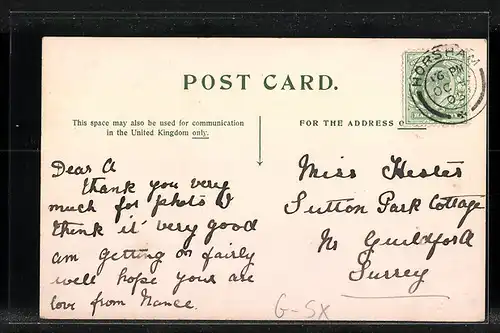 POST CARD.
HORSHAM
PM
OC
This space may also be used for communication
in the United Kingdom only.
FOR THE ADDRESS
Dear A
thank you very
much for photo I
think it very good
am getting on fairly
well hope your are
love from Nance.
Miss Hester
Sutton Park Cottage
Nr Guildford
Surrey
G-SX